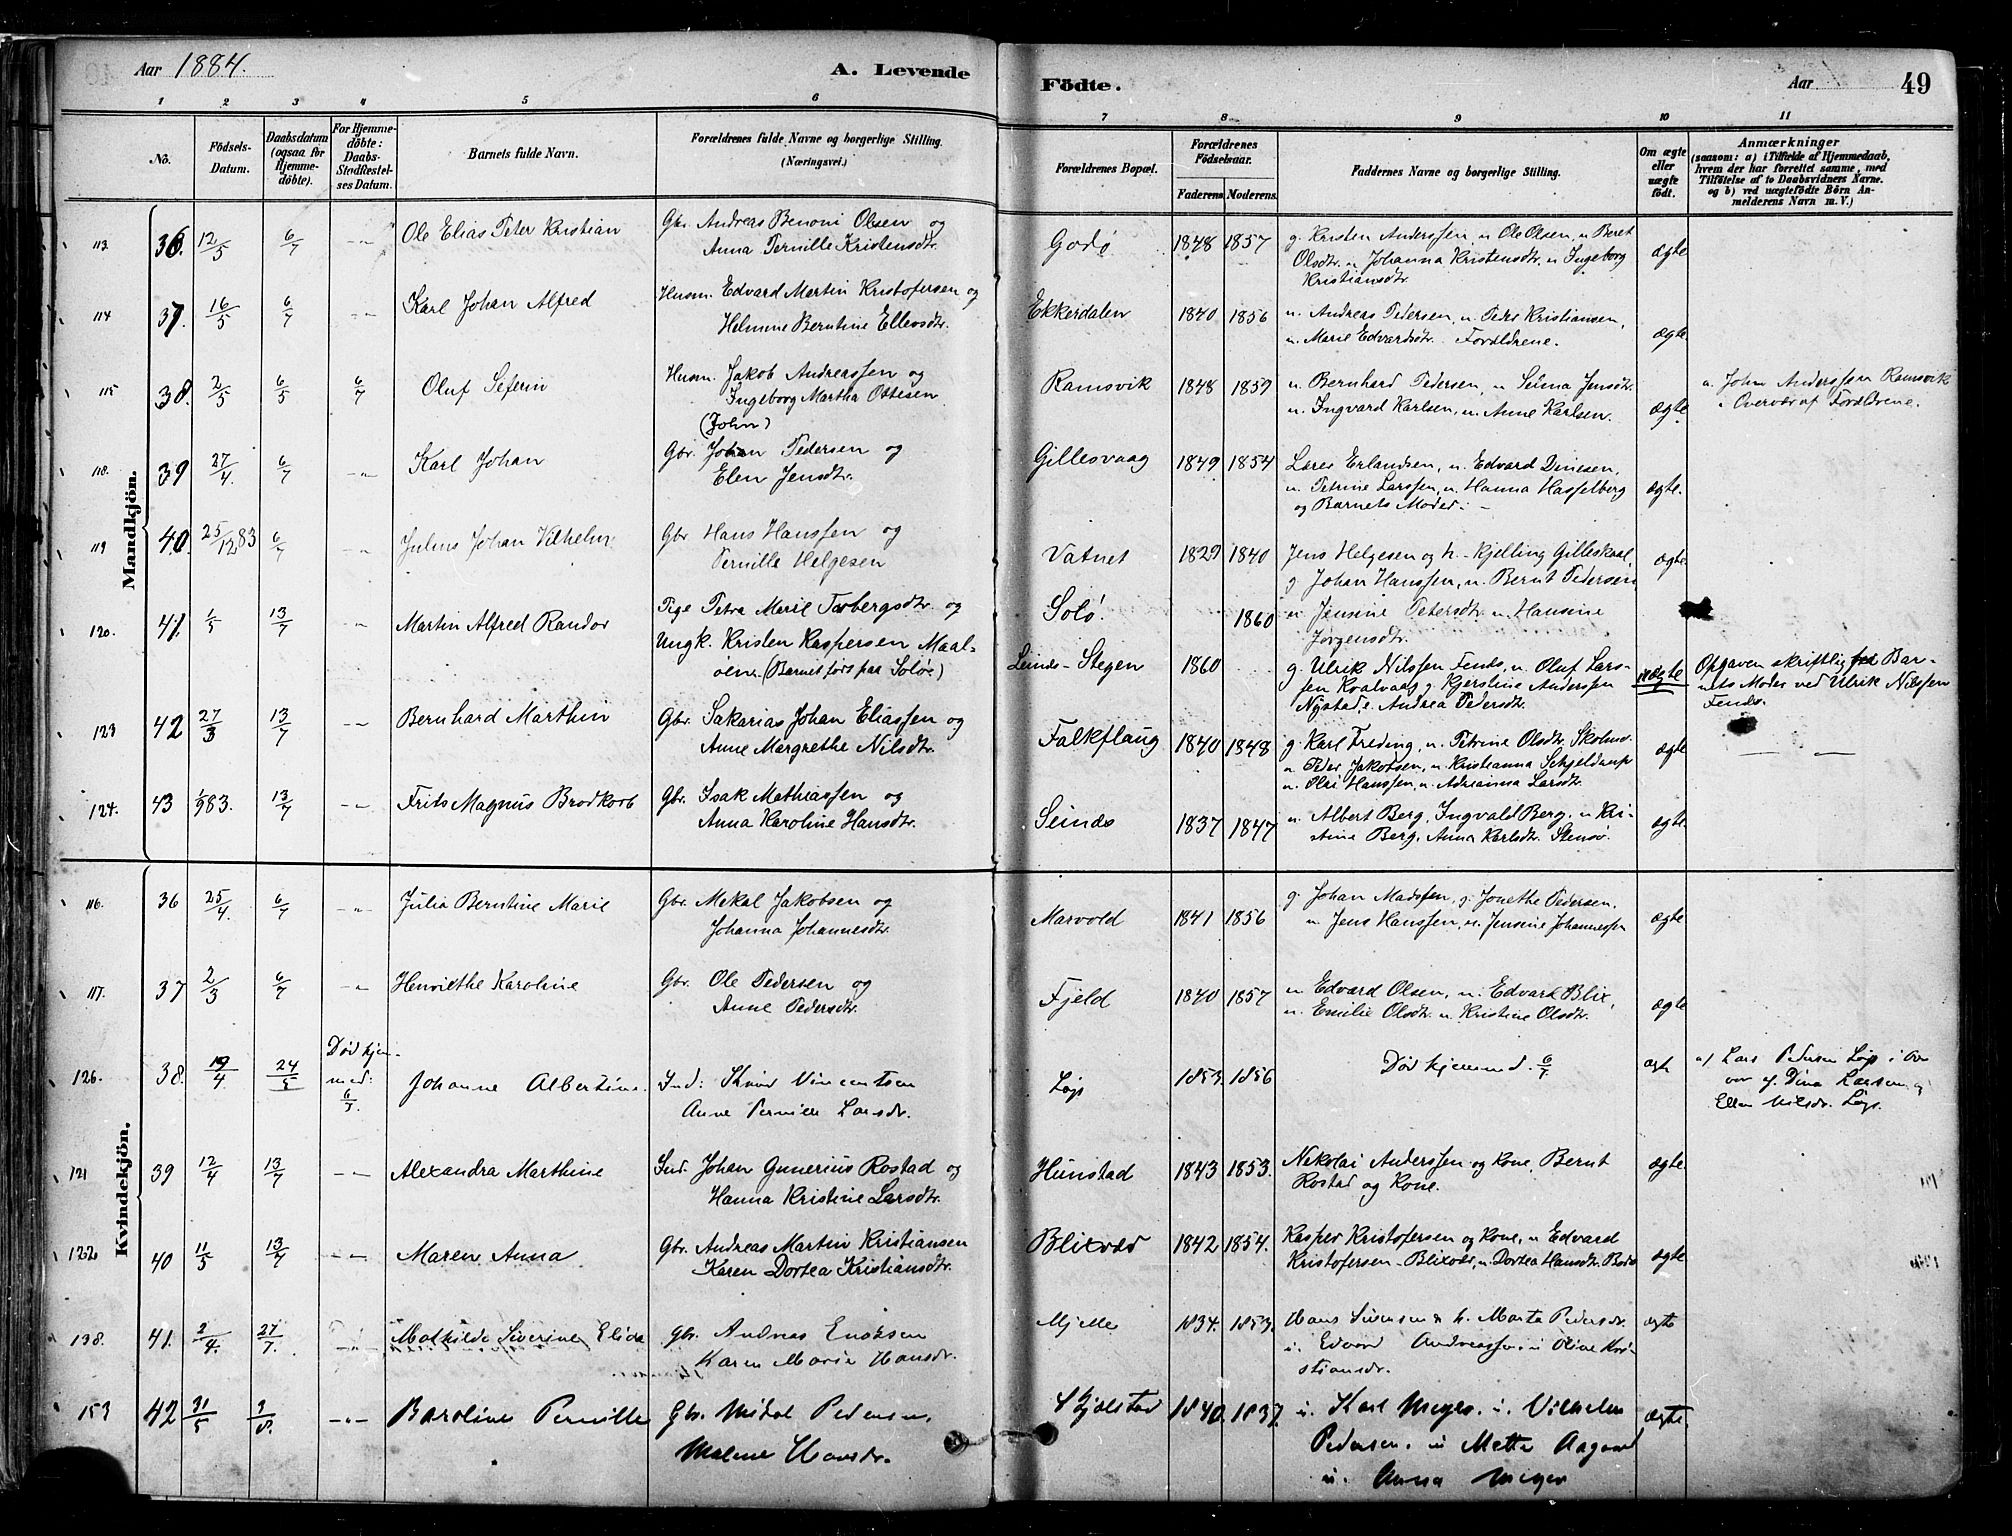 Aar 1884.
A. Levende
Födte.
Aar
49
1 2 3 4 5 6 7 8 9 10 11
No.
Födsels-Datum.
Daabsdatum (ogsaa for Hjemmedöbte).
For Hjemmedöbte: Daabs-Stadfestelses Datum.
Barnets fulde Navn.
Forældrenes fulde Navne og borgerlige Stilling.
(Næringsvei.)
Forældrenes Bopæl.
Forældrenes Födselsaar.
Faderens. Moderens.
Faddernes Navne og borgerlige Stilling.
Om ægte eller uægte födt.
Anmærkninger
(saasom: a) i Tilfælde af Hjemmedaab, hvem der har forrettet samme, med Tilföielse af to Daabsvidners Navne. og b) ved uægtefödte Börn Anmelderens Navn m. V.)
Mandkjön.
113. 36. 12/5 6/7 -"- Ole Elias Peter Kristian Gbr. Andreas Benoni Olsen og
Anna Pernille Kristensdtr. Godø 1848 1857 g. Kristen Anderssen, u Ole Olsen, u Beret
Olsdtr. u Johanna Kristensdtr. u Ingeborg
Kristiansdtr. ægte
114 37. 16/5 6/7 -"- Karl Johan Alfred Husm. Edvard Martin Kristofersen og
Helmine Berntine Ellevsdtr. Ekkerdalen 1840 1856 u. Andreas Pedersen, u. Peder Kristiansen,
u. Marie Edvardsdtr. Forældrene. ægte
115 38. 2/5 6/5 6/7 Oluf Seferin Husm. Jakob Andreassen og
Ingeborg Martha Ottesen Ramsvik 1848 1859 u. Bernhard Pedersen, u Seima Jensdtr.
u. Ingvard Karlsen, u. Anne Karlsen. ægte a. John Anderssen Ramsvik
i Overvær af Forældrene.
118. 39 27/4. 6/7 -"- Karl Johan (John)
Gbr. Johan Pedersen og
Elen Jensdtr. Gillesvaag 1849 1854 Lærer Erlandsen, u. Edvard Dinesen,
u. Petrine Larssen, u. Hanna Hasselberg
og Barnets Moder. ægte.
119 40. 25/12 83 6/7 -"- Julius Johan Vilhelm Gbr Hans Hanssen og
Pernille Helgesen Vatnet 1829 1840 Jens Helgesen og h. Kjelling Gilleskaal,
g. Johan Hanssen, u. Bernt Pedersen ægte
120. 41. 1/5 13/7 -"- Martin Alfred Randor Pige Petra Marie Torbergsdtr. og
Ungk. Kristen Kaspersen Maal-
(Barnet født paa Solø.) Solø. 1860
Leinds-Stegen 1860 u Jensine Petersdtr. u Hansine
Jørgensdtr.
g. Ulrik Nilssen Fends, u. Oluf Lars-
sen Kvalvaag g Kjerstine Anderssen
Nystad, Andrea Pedersdtr. uægte Opgaven skriftlig fra Bar-
nets Moder ved Ulrik Nilssen
Fends.
123 42 27/3 13/7 -"- Bernhard Marthin Gbr. Sakarias Johan Eliassen og
Anne Margrethe Nilsdtr. Falkflaug 1840 1848 g. Karl Freding, u. Petrine Olsdtr.
u Peder Jakobsen, u. Kristianna Schjelderup
u. Olai Hanssen, u. Adrianna Larsdtr. ægte
124. 43 1/9 83. 13/7 -"- Frits Magnus Brodkorb Gbr. Isak Mathiassen og
Anna Karoline Hansdtr. Seinds 1837 1847 u. Albert Berg, Ingvald Berg, u Kri-
stine Berg, Anna Karlsdtr. Stensø. ægte
Kvindekjön.
116. 36 25/4. 6/7 -"- Julia Berntine Marie Gbr. Mekal Jakobsen og
Johanna Johannesdtr. Marvold 1841 1856 g. Johan Madssen, g. Jonethe Pedersen,
u Jens Hanssen, u. Jensine Johannessen ægte
117. 37 2/3 6/7 -"- Henriethe Karoline Gbr. Ole Pedersen og
Anne Pedersdtr. Fjeld 1840 1857 u Edvard Olsen, u. Edvard Blix,
u. Emilie Olsdtr. u Kristine Olsdtr. ægte
126. 38. 19/4 24/5 Død hjem-
med: 6/7 Johanne Albertine Ind: Vincentsen
Anne Pernille Larsdr. Løp 1853. 1856 Død hjemmed. 6/7. ægte a) Lars Pedersen Løp i Over
vær af Dina Larsen og
Ellen Nilsdr. Løp.
121 39 12/4 13/7 -"- Alexandra Marthine Ind. Johan Gunerius Rostad og
Hanna Kristine Larsdtr. Hunstad 1843 1853. Nikolai Anderssen og Kone, Bernt
Rostad og Kone. ægte
122 40 11/5 13/7 -"- Maren Anna Gbr. Andreas Martin Kristiansen
Karen Dortea Kristiansdtr. Blixvær 1842 1854. Kasper Kristofersen og Kone, u Edvard
Kristofersen-Blixvær, u. Dortea Hansdtr. Bodø ægte
138. 41. 2/4. 27/7. Mathilde Severine Elida Gbr. Andreas Enoksen
Karen Marie Hansdr. Mjelle 1834. 1853. Hans Sivensen & h. Marta Pedersdr.
u. Edvard Andreassen u Oline Kri-
stiansdr. ægte
153 42 31/5 3/8. -"- Baroline Pernille Gbr. Mikal Pedersen,
Malene Hansdr. Skjelstad 1840. 1837. u. Karl Meyer. u. Vilhelm
Pedersen. u Mette Aagaard
u. Anna Meyer ægte.